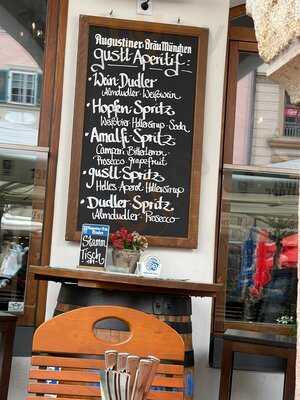 Augustiner-Bräu München
gustl Aperitif:
• Wein Dudler
Almdudler Weißwein
• Hopfen Spritz
Weißbier Hollersirup Soda
• Amalfi Spritz
Campari Bitterlemon
Prosecco Grapefruit
• gustl Spritz
Helles Aperol Hollersirup
• Dudler Spritz
Almdudler Prosecco
Stamm
Tisch